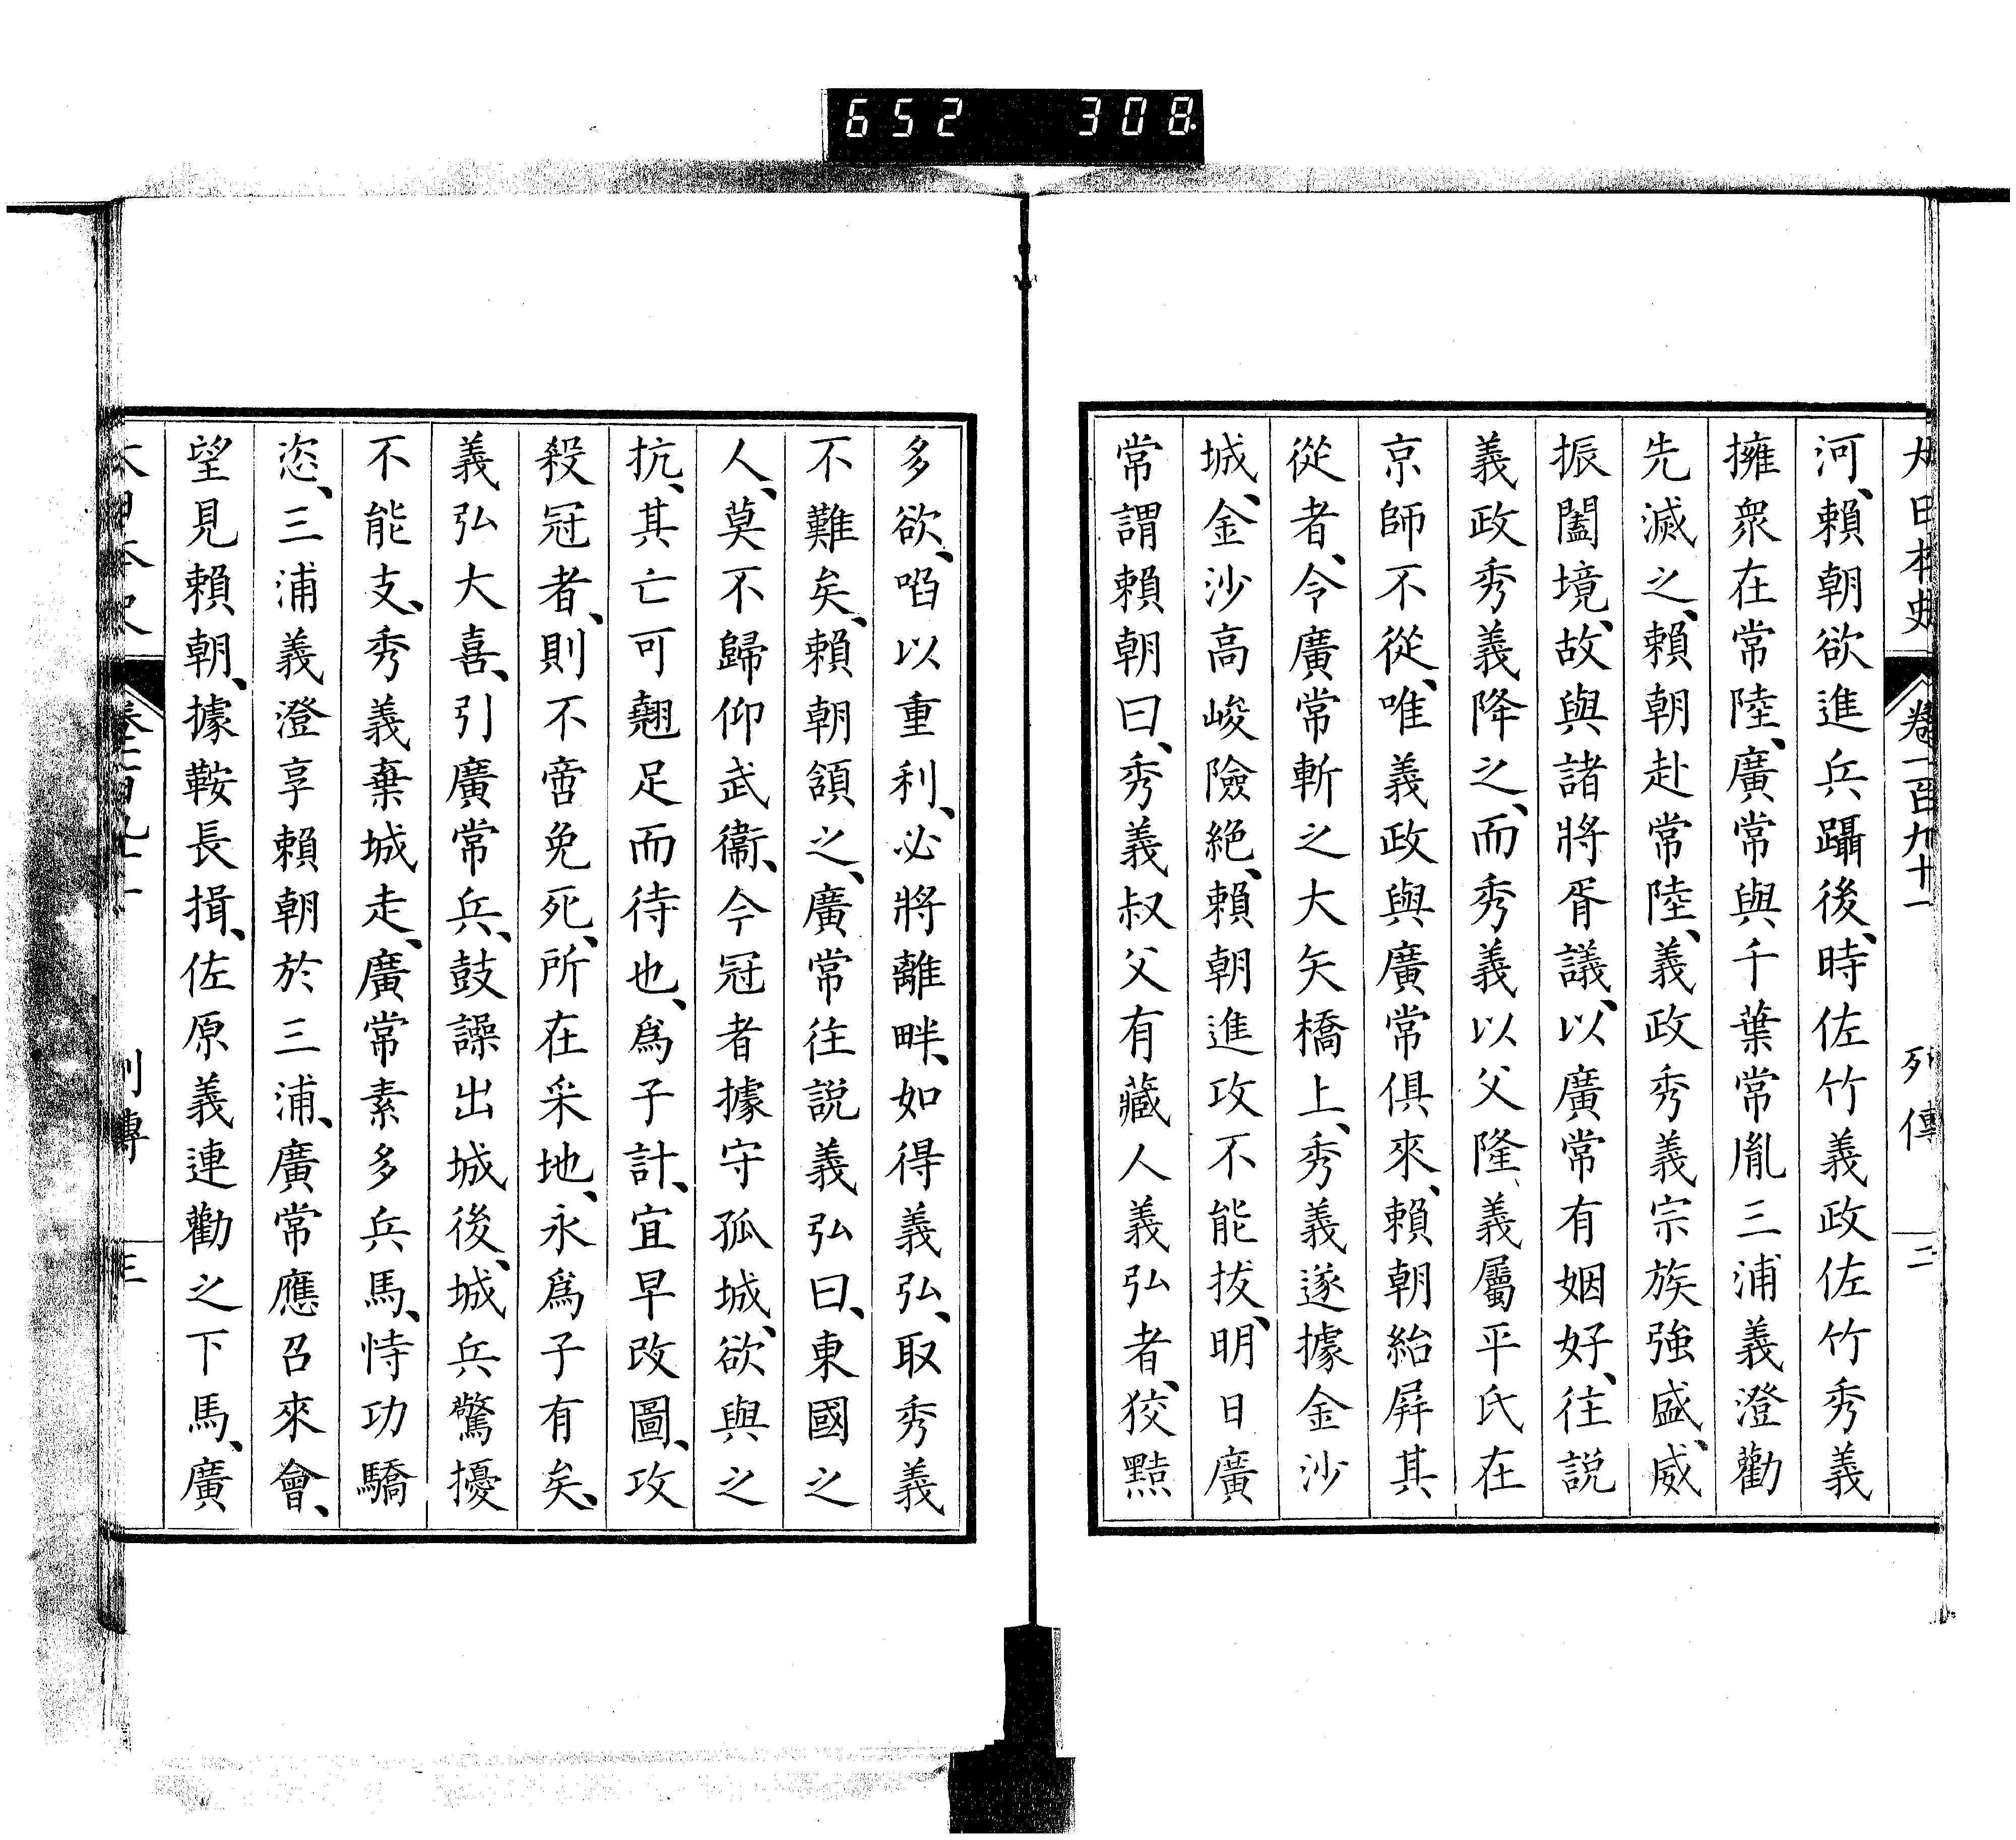 652 308
大日本史 卷一百九十一 列傳 二
河、賴朝欲進兵躡後、時佐竹義政佐竹秀義
擁衆在常陸、廣常與千葉常胤三浦義澄勸
先滅之、賴朝赴常陸、義政秀義宗族強盛、威
振闔境、故與諸將胥議、以廣常有姻好、往説
義政秀義降之、而秀義以父隆義屬平氏在
京師不從、唯義政與廣常俱來、賴朝紿屛其
從者、令廣常斬之大矢橋上、秀義遂據金沙
城、金沙高峻險絶、賴朝進攻不能拔、明日廣
常謂賴朝曰、秀義叔父有藏人義弘者、狡黠
多欲、啗以重利、必將離畔、如得義弘、取秀義
不難矣、賴朝頷之、廣常往説義弘曰、東國之
人、莫不歸仰武衞、今冠者據守孤城、欲與之
抗、其亡可翹足而待也、爲子計、宜早改圖、攻
殺冠者、則不啻免死、所在采地、永爲子有矣、
義弘大喜、引廣常兵、鼓譟出城後、城兵驚擾
不能支、秀義棄城走、廣常素多兵馬、恃功驕
恣、三浦義澄享賴朝於三浦、廣常應召來會、
望見賴朝、據鞍長揖、佐原義連勸之下馬、廣
大日本史 卷一百九十一 列傳 三